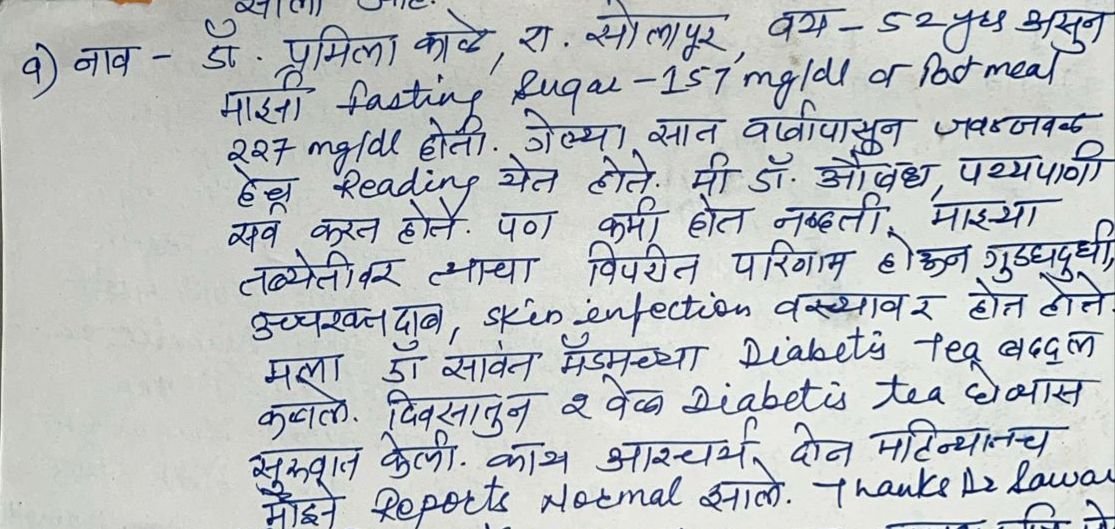 १) नाव - डॉ. प्रमिला काळे, रा. सोलापूर, वय - 52 yrs असुन
माझी fasting Sugar - 157 mg/dl व Post meal
२२7 mg/dl होती. गेल्या सात वर्षापासुन जवळजवळ
हेच Reading येत होते. मी डॉ. औषध, पथ्यपाणी
सर्व करत होते. पण कमी होत नव्हती. माझ्या
तब्येतीवर त्याचा विपरीत परिणाम होऊन गुडघेदुखी,
उच्चरक्तदाब, skin infection वरच्यावर होत होते.
मला डॉ सावंत मॅडमच्या Diabetis Tea बद्दल
कळाले. दिवसातुन २ वेळ Diabetis tea घेण्यास
सुरुवात केली. काय आश्चर्य, दोन महिन्यातच
माझे Reports Normal झाले. Thanks Dr Sawa